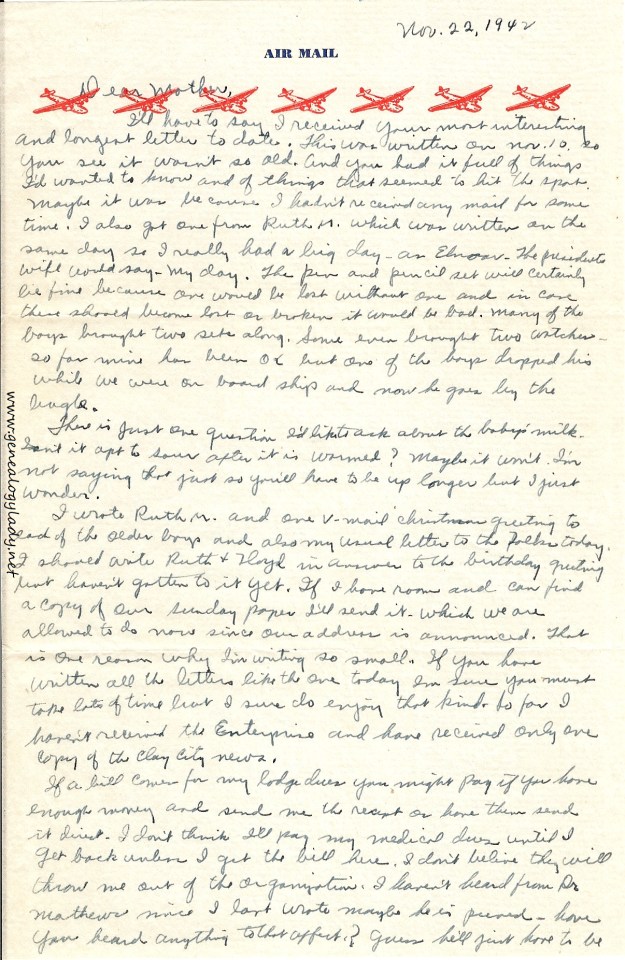 Nov. 22, 1942
AIR MAIL
Dear Mother,
I'll have to say I received your most interesting
and longest letter to date. This was written on Nov. 10, so
you see it wasn't so old. And you had it full of things
I'd wanted to know and of things that seemed to hit the spot.
Maybe it was because I hadn't received any mail for some
time. I also got one from Ruth M. which was written on the
same day so I really had a big day - as The presidents
wife would say - My day. The pen and pencil set will certainly
be fine because one would be lost without one and in case
these should become lost or broken it would be bad. Many of the
boys brought two sets along. Some even brought two watches -
so far mine has been OK but one of the boys dropped his
while we were on board ship and now he goes by the
bugle.
There is just one question I'd like to ask about the baby's milk -
Isn't it apt to sour after it is warmed? Maybe it won't. I'm
not saying that just so you'll have to be up longer but I just
wonder.
I wrote Ruth M. and one V-mail Christmas greeting to
each of the older boys and also my usual letter to the today.
I should write Ruth & Floyd in answer to the birthday greeting
but haven't gotten to it yet. If I have room and can find
a copy of our Sunday paper I'll send it - which we are
allowed to do now since our address is announced. That
is one reason why I'm writing so small. If you have
written all the letters like the one today I'm sure you must
take lots of time but I sure do enjoy that kind. So far I
haven't received the Enterprise and have received only one
copy of the Clay City news.
If a bill comes for my lodge dues you might pay if you have
enough money and send me the or have them send
it direct. I don't think I'll pay my medical dues until I
get back unless I get the bill here. I don't belive they will
throw me out of the organization. I haven't heard from Dr
Mathews since I last wrote maybe he is peeved - have
you heard anything to that affect? Guess he'll just have to be
www.genealogylady.net